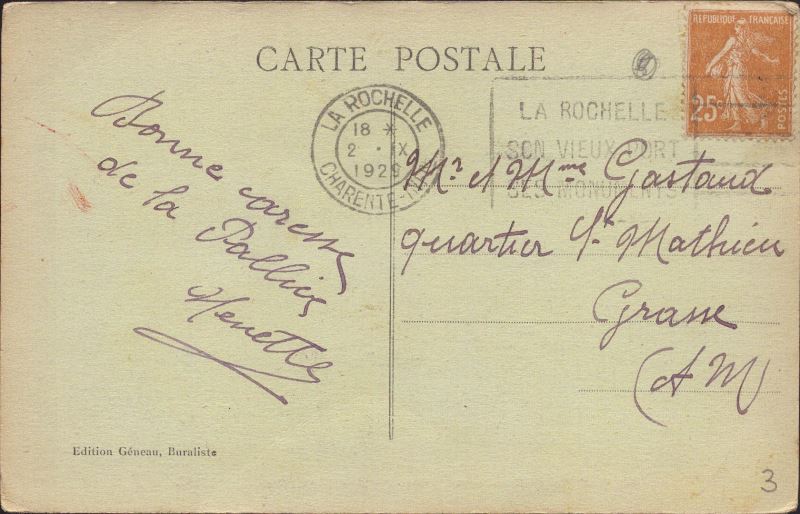 CARTE POSTALE
RÉPUBLIQUE FRANÇAISE
25c
POSTES
LA ROCHELLE
18 *
2 · X
1929
CHARENTE-INF
LA ROCHELLE
SON VIEUX PORT
SES MONUMENTS
Bonne caresse
de la Pallice
Menette
Mr et Mme Gastaud
quartier St Mathieu
Grasse
(AM)
Edition Géneau, Buraliste
3